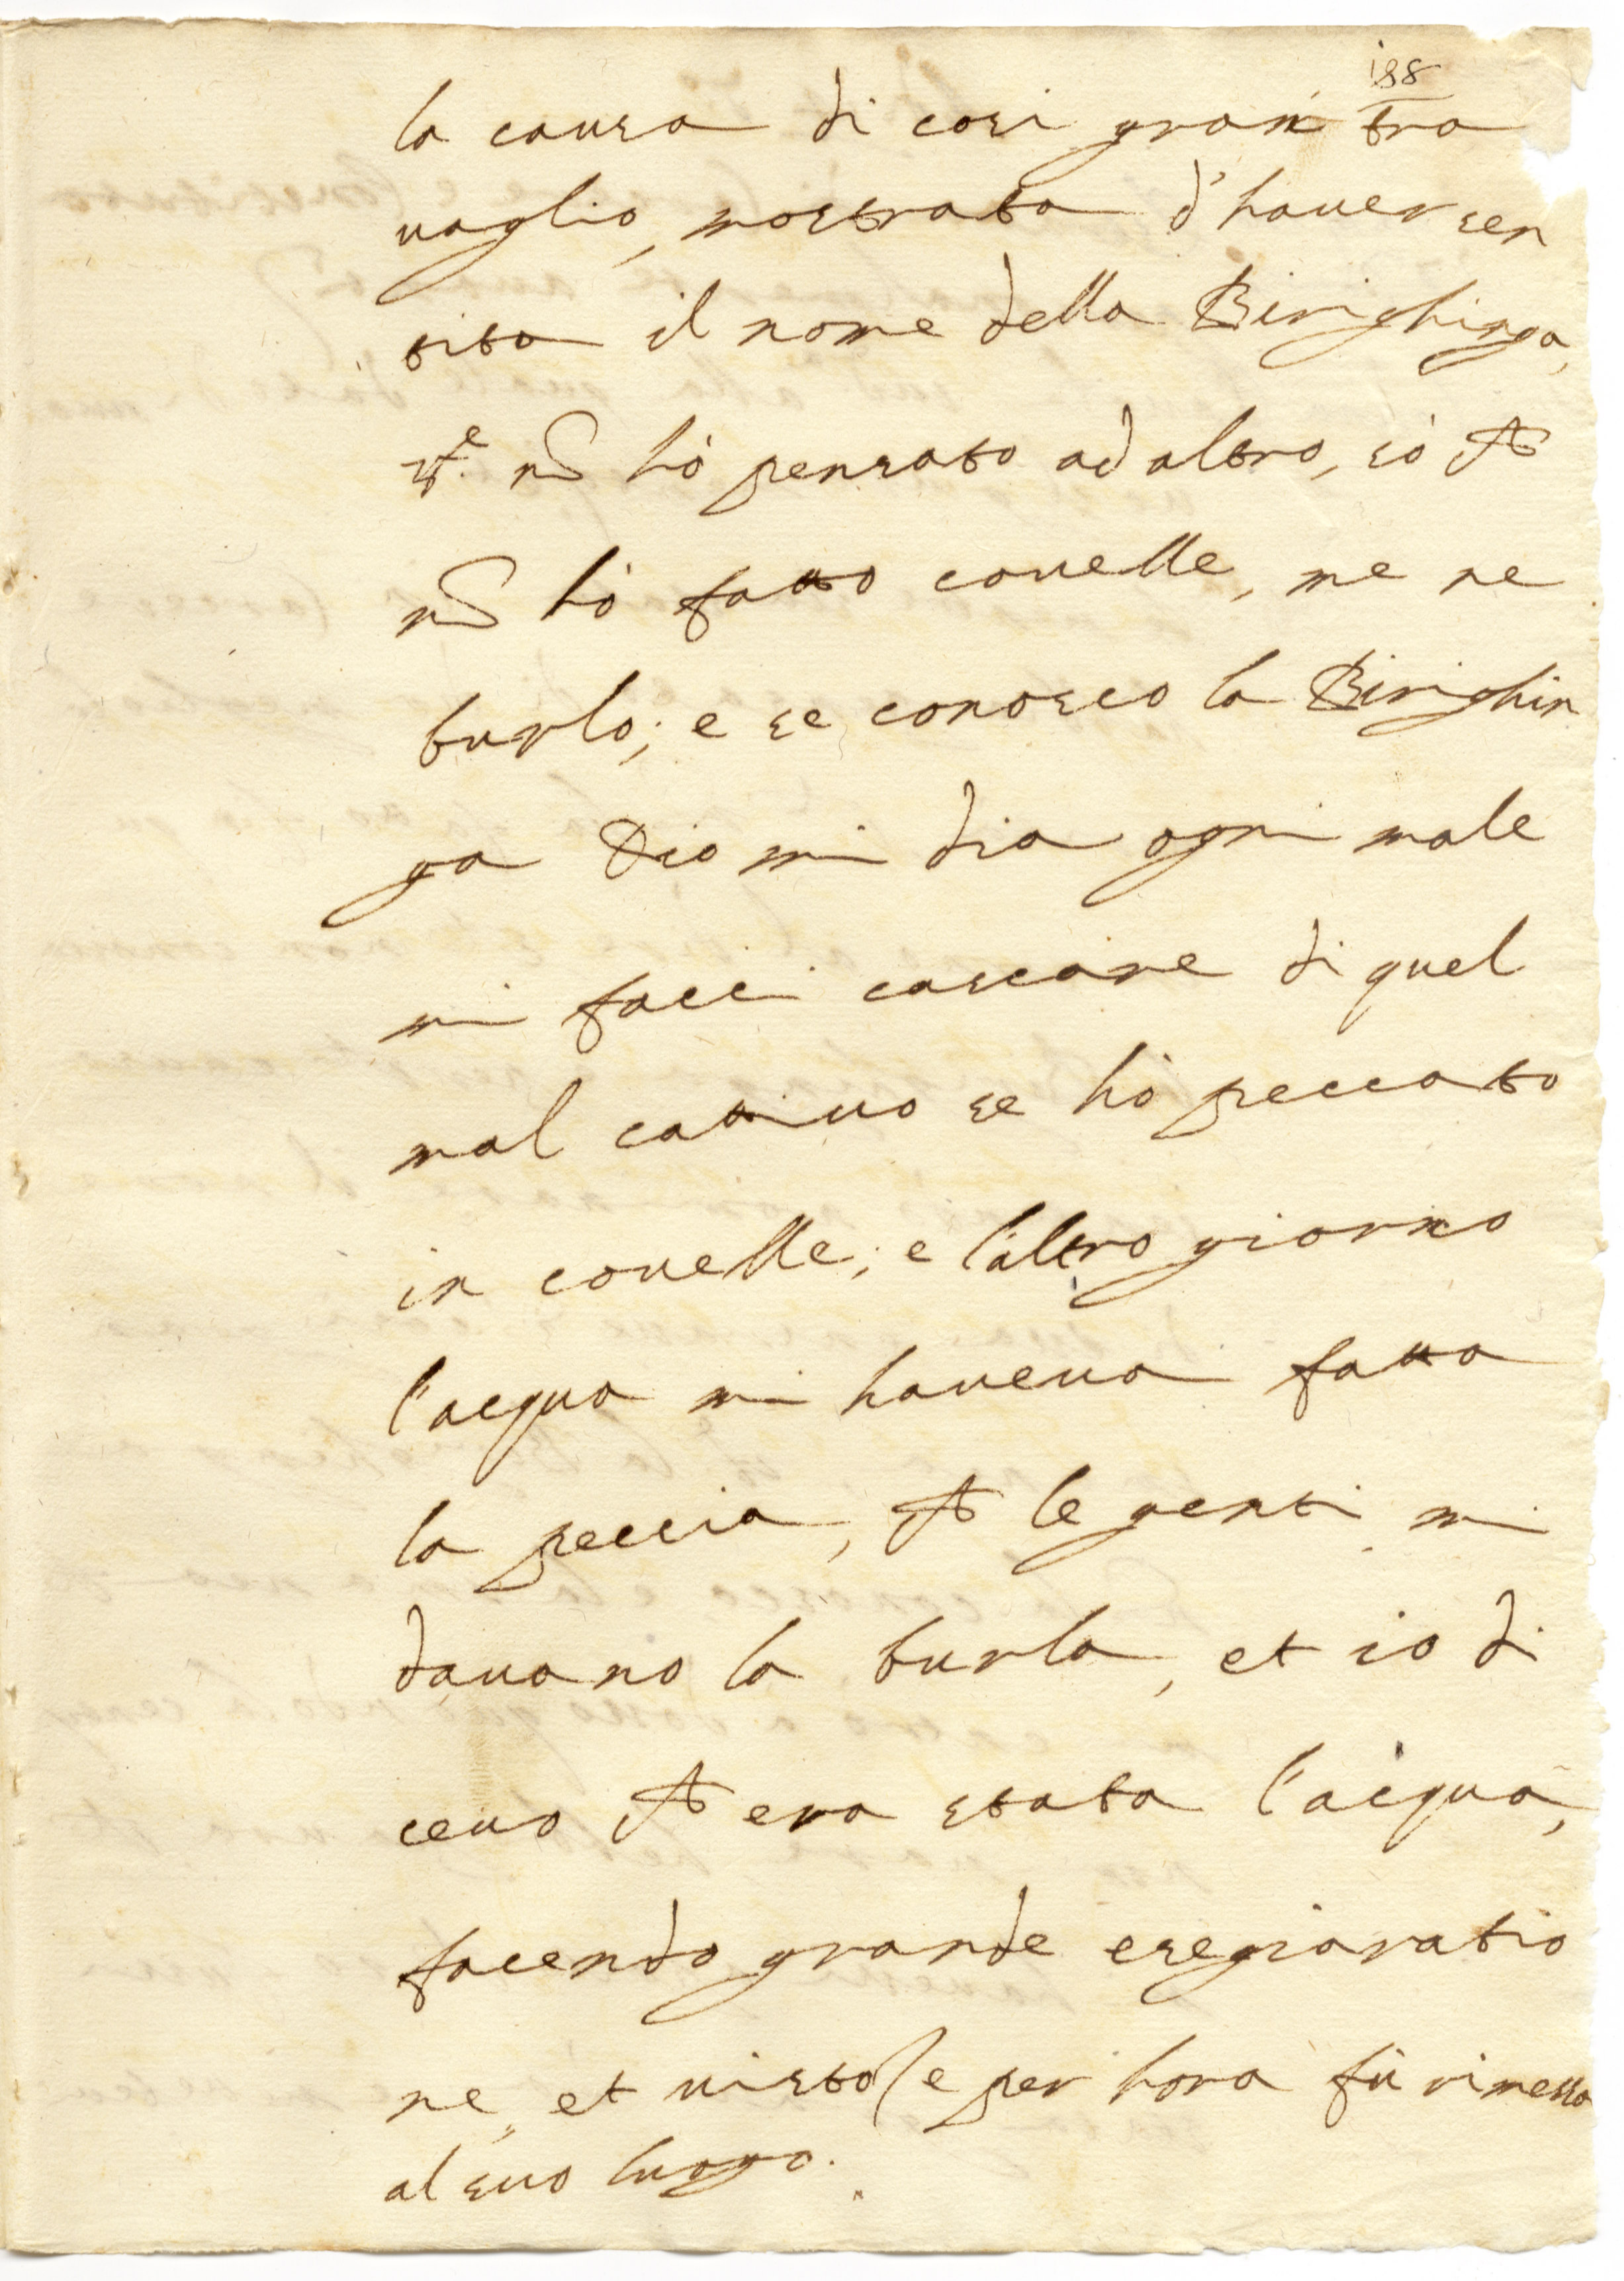 188
la causa di cosi gran tra
uaglio, mostrata d'hauer sen
tita il nome della Birighinga,
r.e nõ hò pensato ad altro, sò che
nõ hò fatto couelle, me ne
burlo; e se conosco la Birighin
ga Dio mi dia ogni male
mi facci cascare di quel
mal cattiuo se hò peccato
in couelle; e l'altro giorno
l'acqua mi haueua fatta
la peccia, che le genti mi
dauano la burla, et io di
ceuo che era stata l'acqua,
facendo grande esegiaratio
ne, et uisto le per hora fù rimessa
al suo luogo.